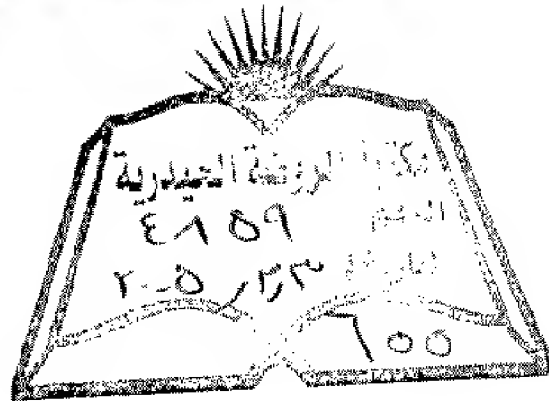 مكتبة الروضة الحيدرية
الرقم ٤٨٥٩
التاريخ ٢٠٠٥
٦٥٥